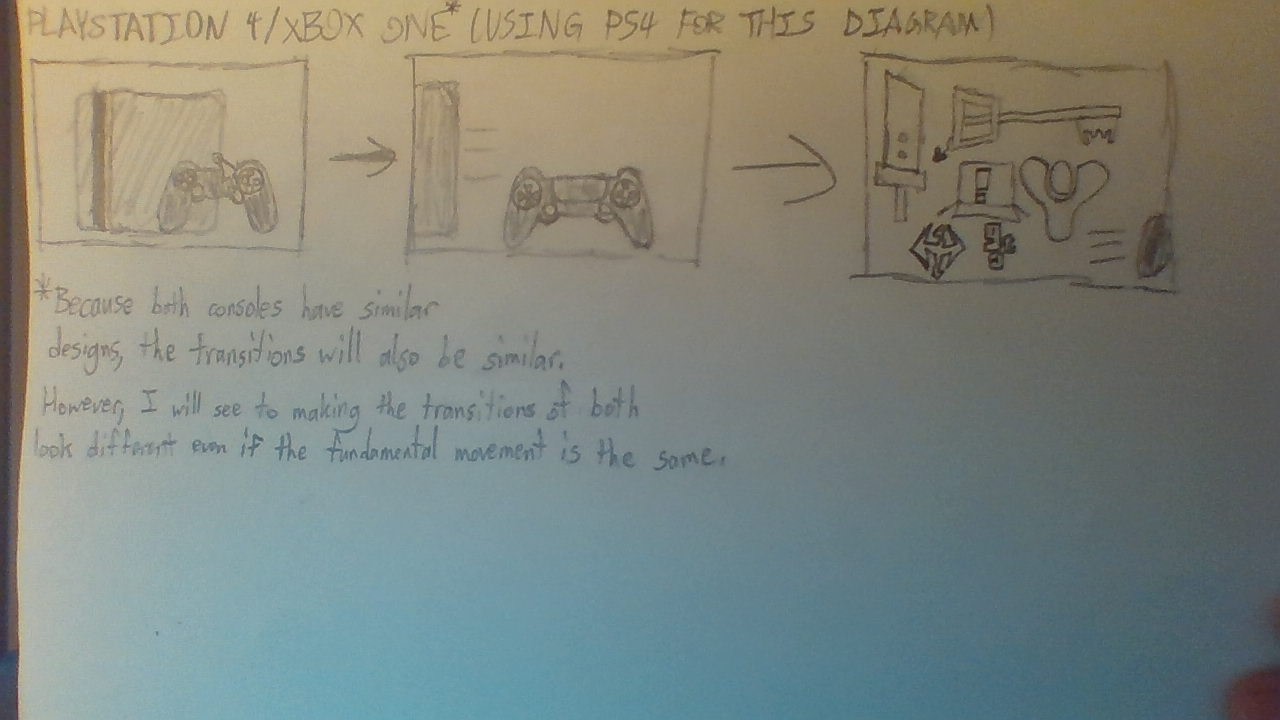 PLAYSTATION 4/XBOX ONE* (USING PS4 FOR THIS DIAGRAM)
*Because both consoles have similar
designs, the transitions will also be similar.
However, I will see to making the transitions of both
look different even if the fundamental movement is the same.